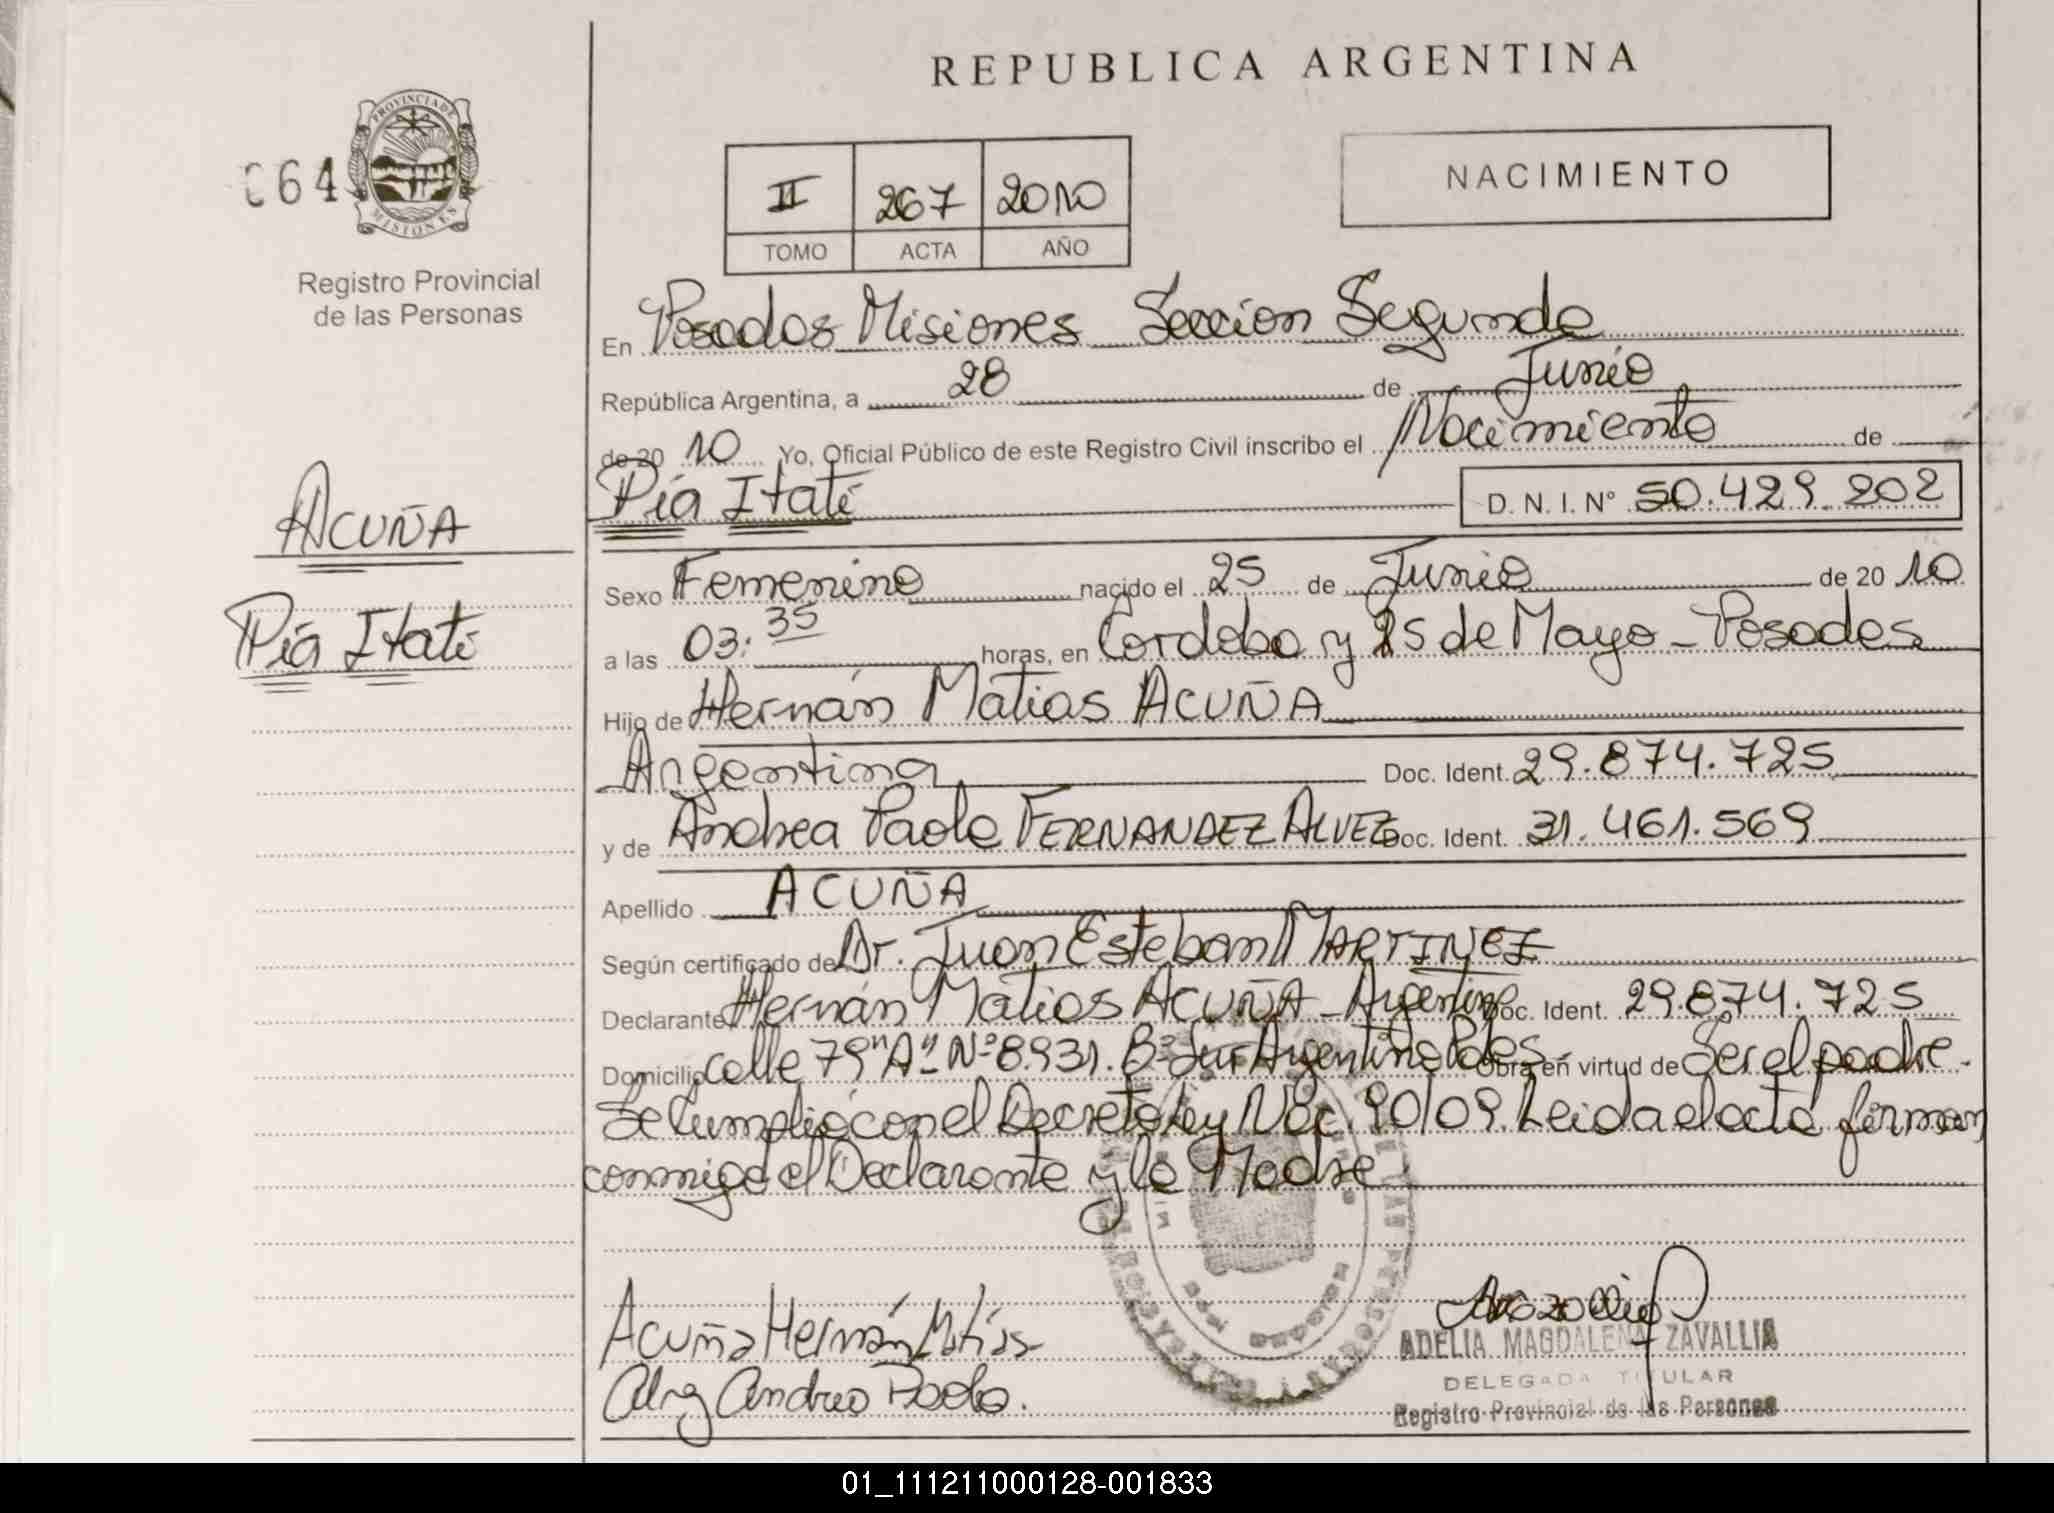 REPUBLICA ARGENTINA
PROVINCIA DE
MISIONES
064
Registro Provincial
de las Personas
II 267 2010
TOMO ACTA AÑO
NACIMIENTO
En Posadas Misiones Sección Segunda
República Argentina, a 28 de Junio
de 20 10 Yo, Oficial Público de este Registro Civil inscribo el Nacimiento de
Pía Itatí D. N. I. N° 50.429.202
ACUÑA
Pía Itatí
Sexo Femenino nacido el 25 de Junio de 20 10
a las 03:35 horas, en Cordoba y 25 de Mayo - Posadas
Hijo de Hernán Matias ACUÑA
Argentina Doc. Ident. 29.874.725
y de Andrea Paola FERNANDEZ ALVEZ Doc. Ident. 31.461.569
Apellido ACUÑA
Según certificado de Dr. Juan Esteban MARTINEZ
Declarante Hernán Matias ACUÑA - Argentino Doc. Ident. 29.874.725
Domicilio calle 79 "A" N° 8931. B° Sur Argentino Pdas Obra en virtud de Ser el padre.
Se Cumplió con el Decreto Ley Nac. 90/09. Leida el acta firman
conmigo el Declarante y la Madre
Acuña Hernán Matías
Andrea Paola.
ADELIA MAGDALENA ZAVALLIA
DELEGADA TITULAR
Registro Provincial de las Personas
01_111211000128-001833